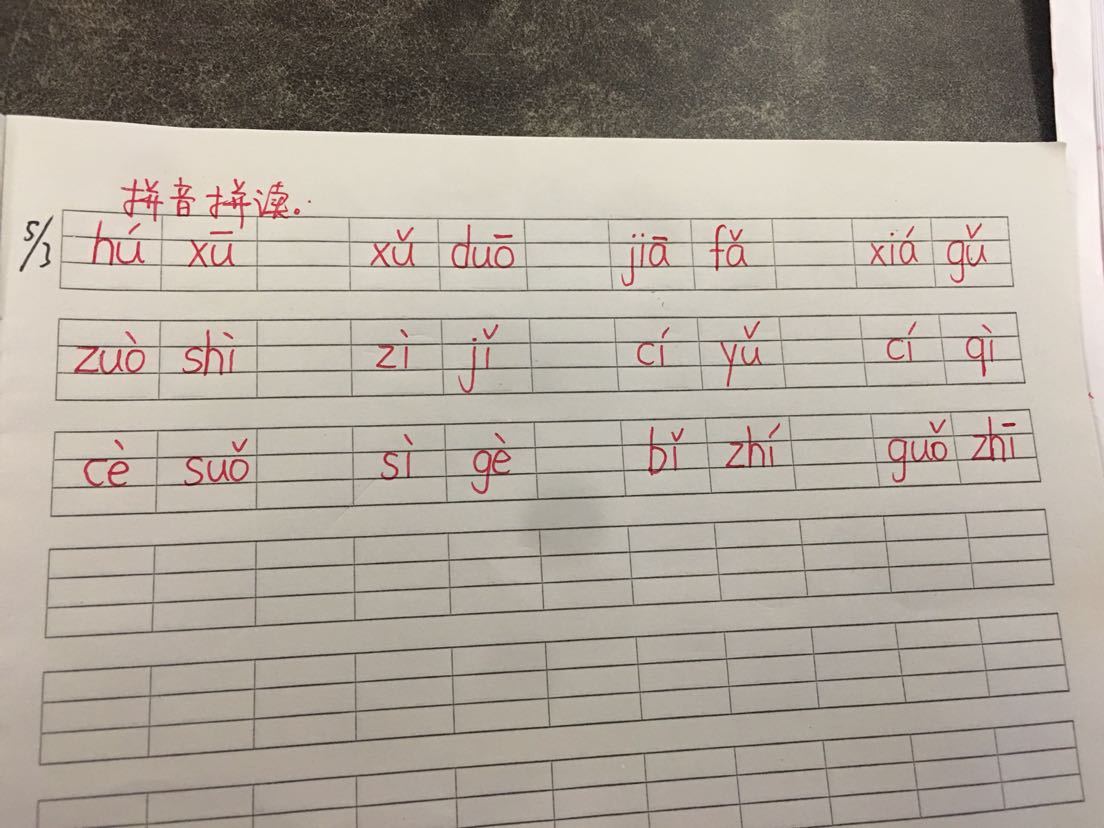 拼音拼读.
5/3 hú xū xǔ duō jiā fǎ xiá gǔ
zuò shì zì jǐ cí yǔ cí qì
cè suǒ sì gè bǐ zhí guǒ zhī